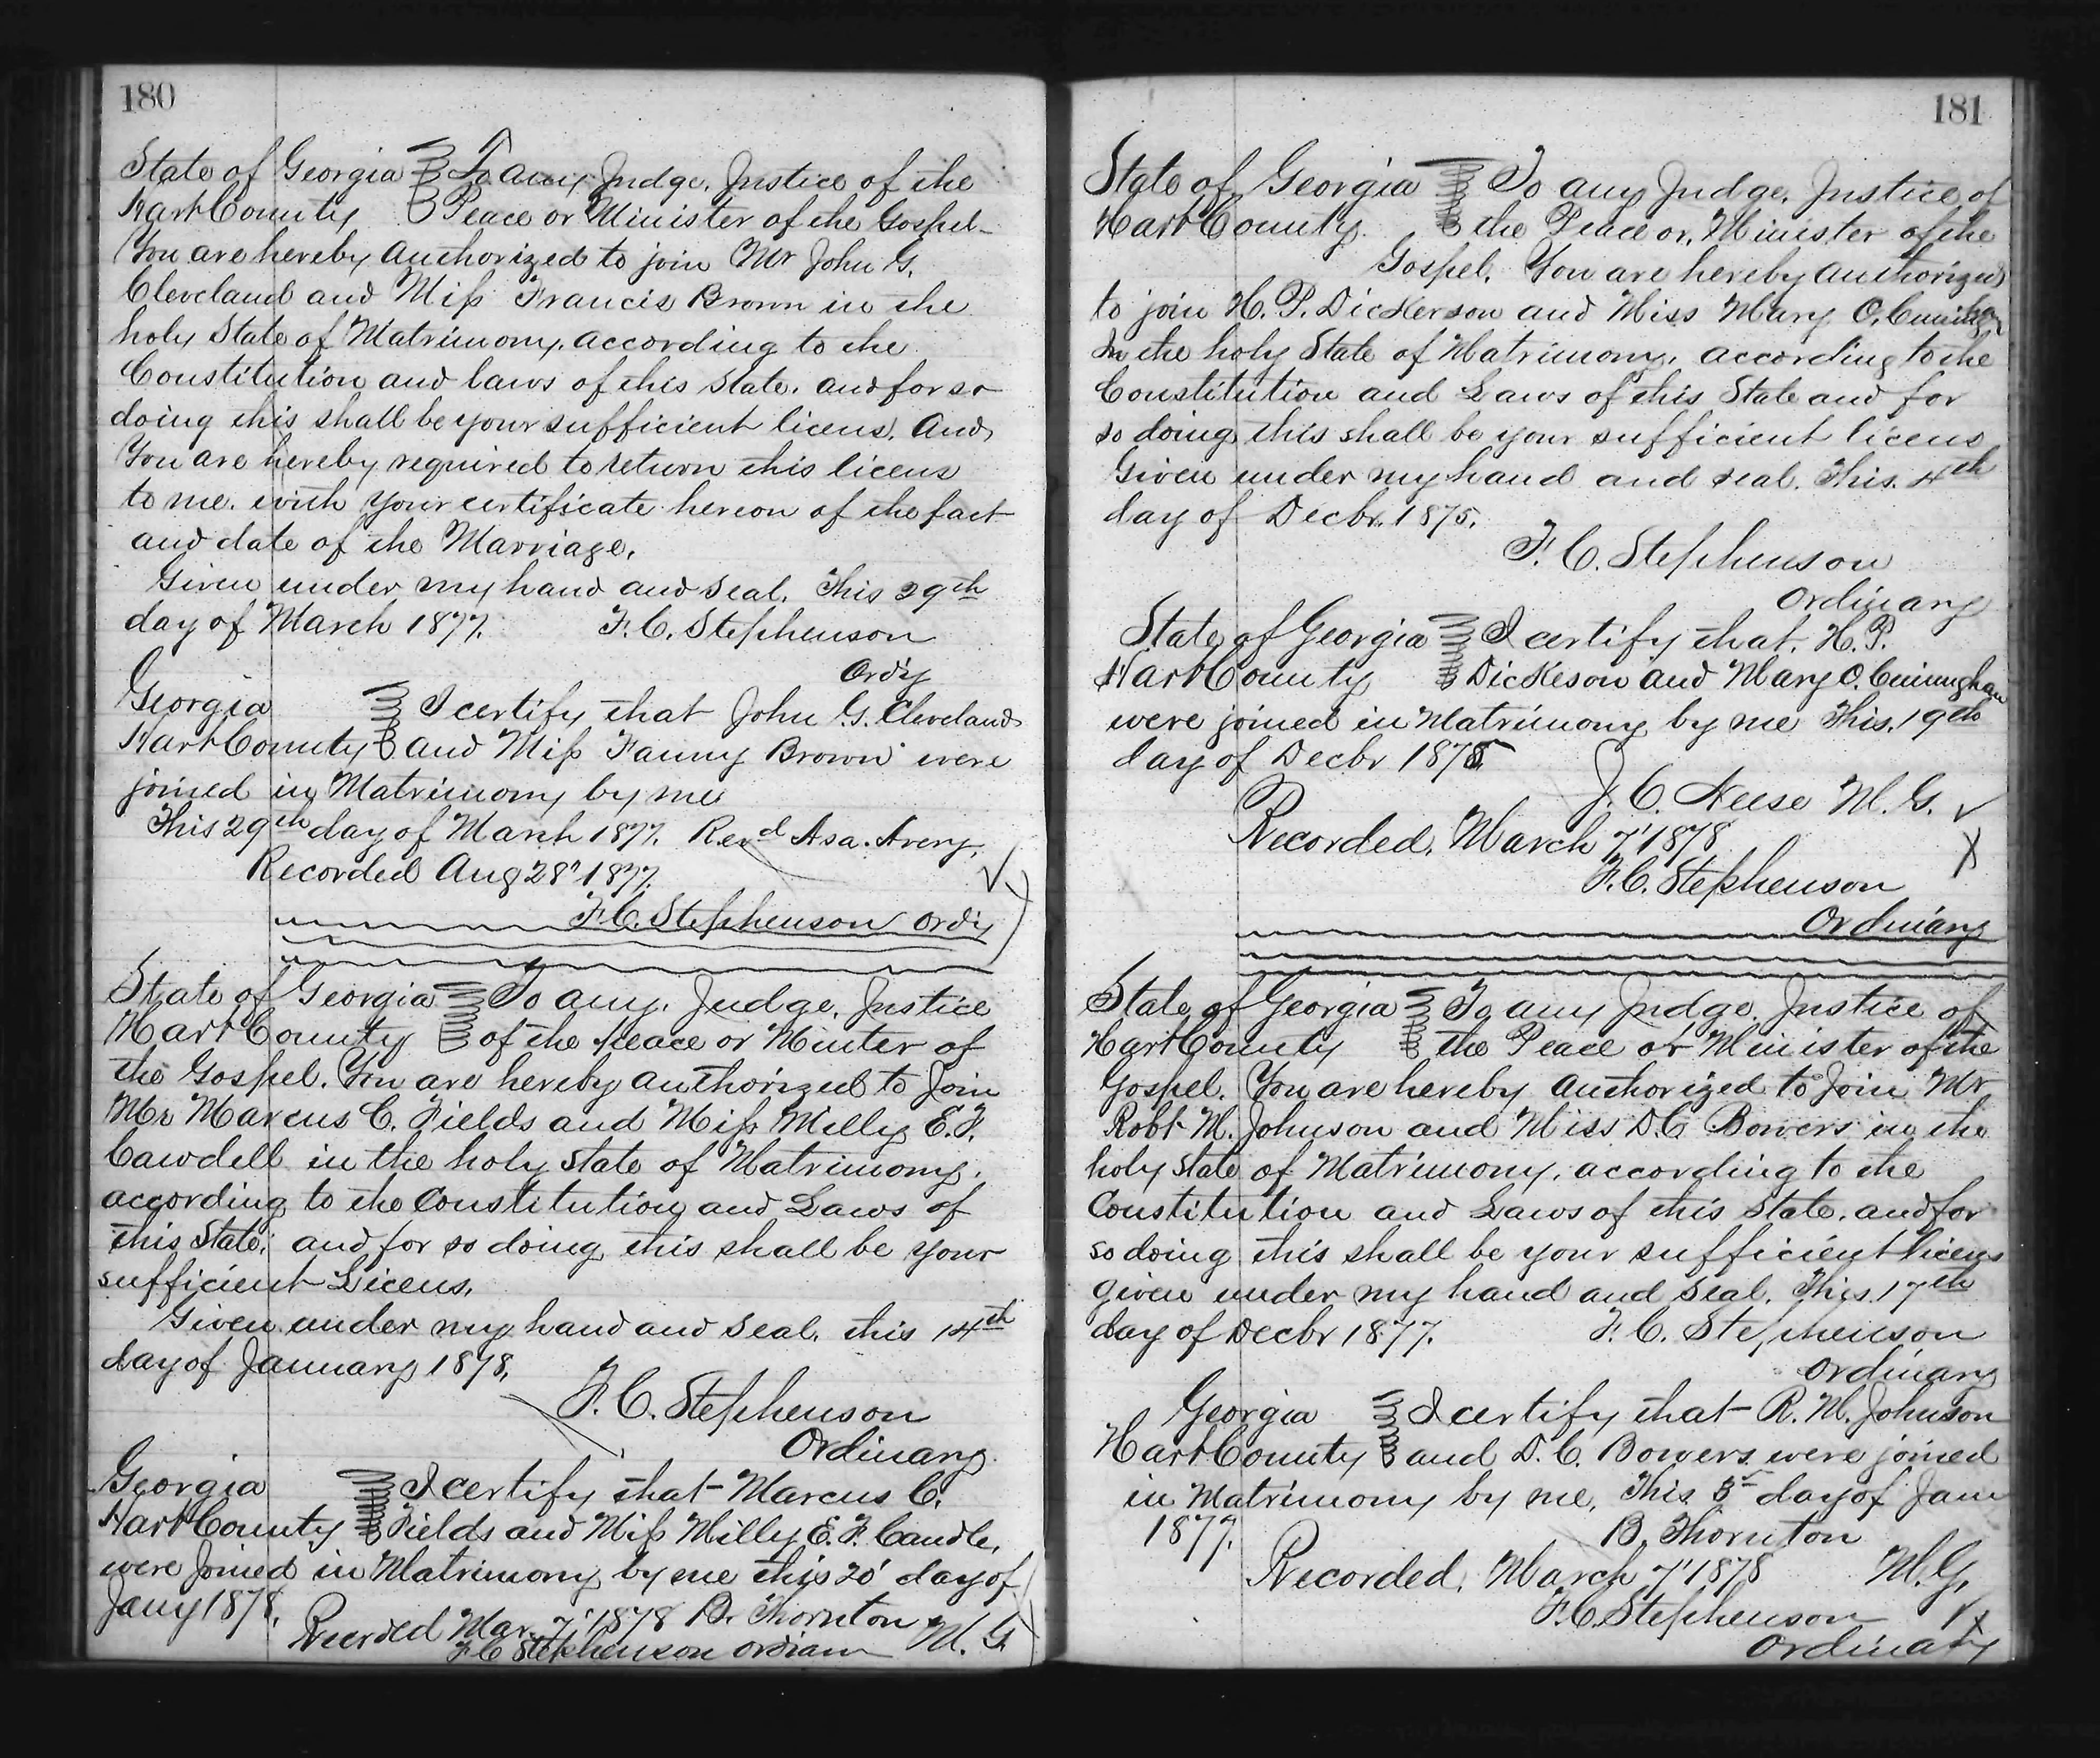 180
State of Georgia To any Judge, Justice of the
Hart County Peace or Minister of the Gospel
You are hereby Authorized to join Mr John G.
Cleveland and Miss Francis Brown in the
holy State of Matrimony, according to the
Constitution and laws of this State, and for so
doing this shall be your sufficient licens, And
You are hereby required to return this licens
to me, with your certificate hereon of the fact
and date of the Marriage,
Given under my hand and seal, This 29th
day of March 1877, F. C. Stephenson
Ordy
Georgia I certify that John G. Cleveland
Hart County and Miss Fanny Brown were
joined in Matrimony by me
This 29th day of March 1877. Revd Asa. Avery,
Recorded Aug 28" 1877,
F. C. Stephenson Ordy
State of Georgia To any, Judge, Justice
Hart County of the peace or Minter of
the Gospel. You are hereby authorized to Join
Mr Marcus C. Fields and Miss Milly E. F.
Cawdell in the holy state of Matrimony,
according to the Constitution and Laws of
this State, and for so doing this shall be your
sufficient Licens,
Given under my hand and seal, this 14th
day of January 1878,
F. C. Stephenson
Ordinary
Georgia I certify that Marcus C.
Hart County Fields and Miss Milly E. F. Caudle,
were Joined in Matrimony by me this 20' day of
Jany 1878, B. Thornton M. G.
Recorded Mar. 7' 1878
F C Stephenson
181
State of Georgia To any Judge, Justice of
Hart County. the Peace or, Minister of the
Gospel. You are hereby Authorized
to join H. P. Dickerson and Miss Mary O.
In the holy State of Matrimony, according to the
Constitution and Laws of this State and for
so doing this shall be your sufficient licens
Given under my hand and seal. This. 4th
day of Decbr. 1875,
F. C. Stephenson
Ordinary
State of Georgia I certify that, H. P.
Hart County Dickeson and Mary O.
were joined in Matrimony by me This, 19th
day of Decbr 1875
J. C. Neese M. G.
Recorded, March 7' 1878
F. C. Stephenson
Ordinary
State of Georgia To any Judge, Justice of
Hart County the Peace or Minister of the
Gospel. You are hereby Authorized to Join Mr
Robt M. Johnson and Miss D. C Bowers in the
holy state of Matrimony, according to the
Constitution and Laws of this State, and for
so doing this shall be your sufficient licens
given under my hand and seal, This 17th
day of Decbr 1877. F. C. Stephenson
Ordinary
Georgia I certify that R. M. Johnson
Hart County and D. C. Bowers were joined
in Matrimony by me, This day of Jan
1877, B. Thornton
Recorded, March 7' 1878 M. G,
F. C. Stephenson
Ordinary